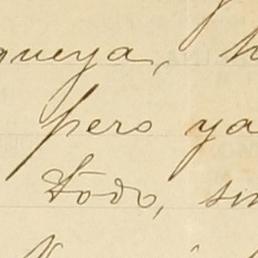 queya,
pero ya
Todo,